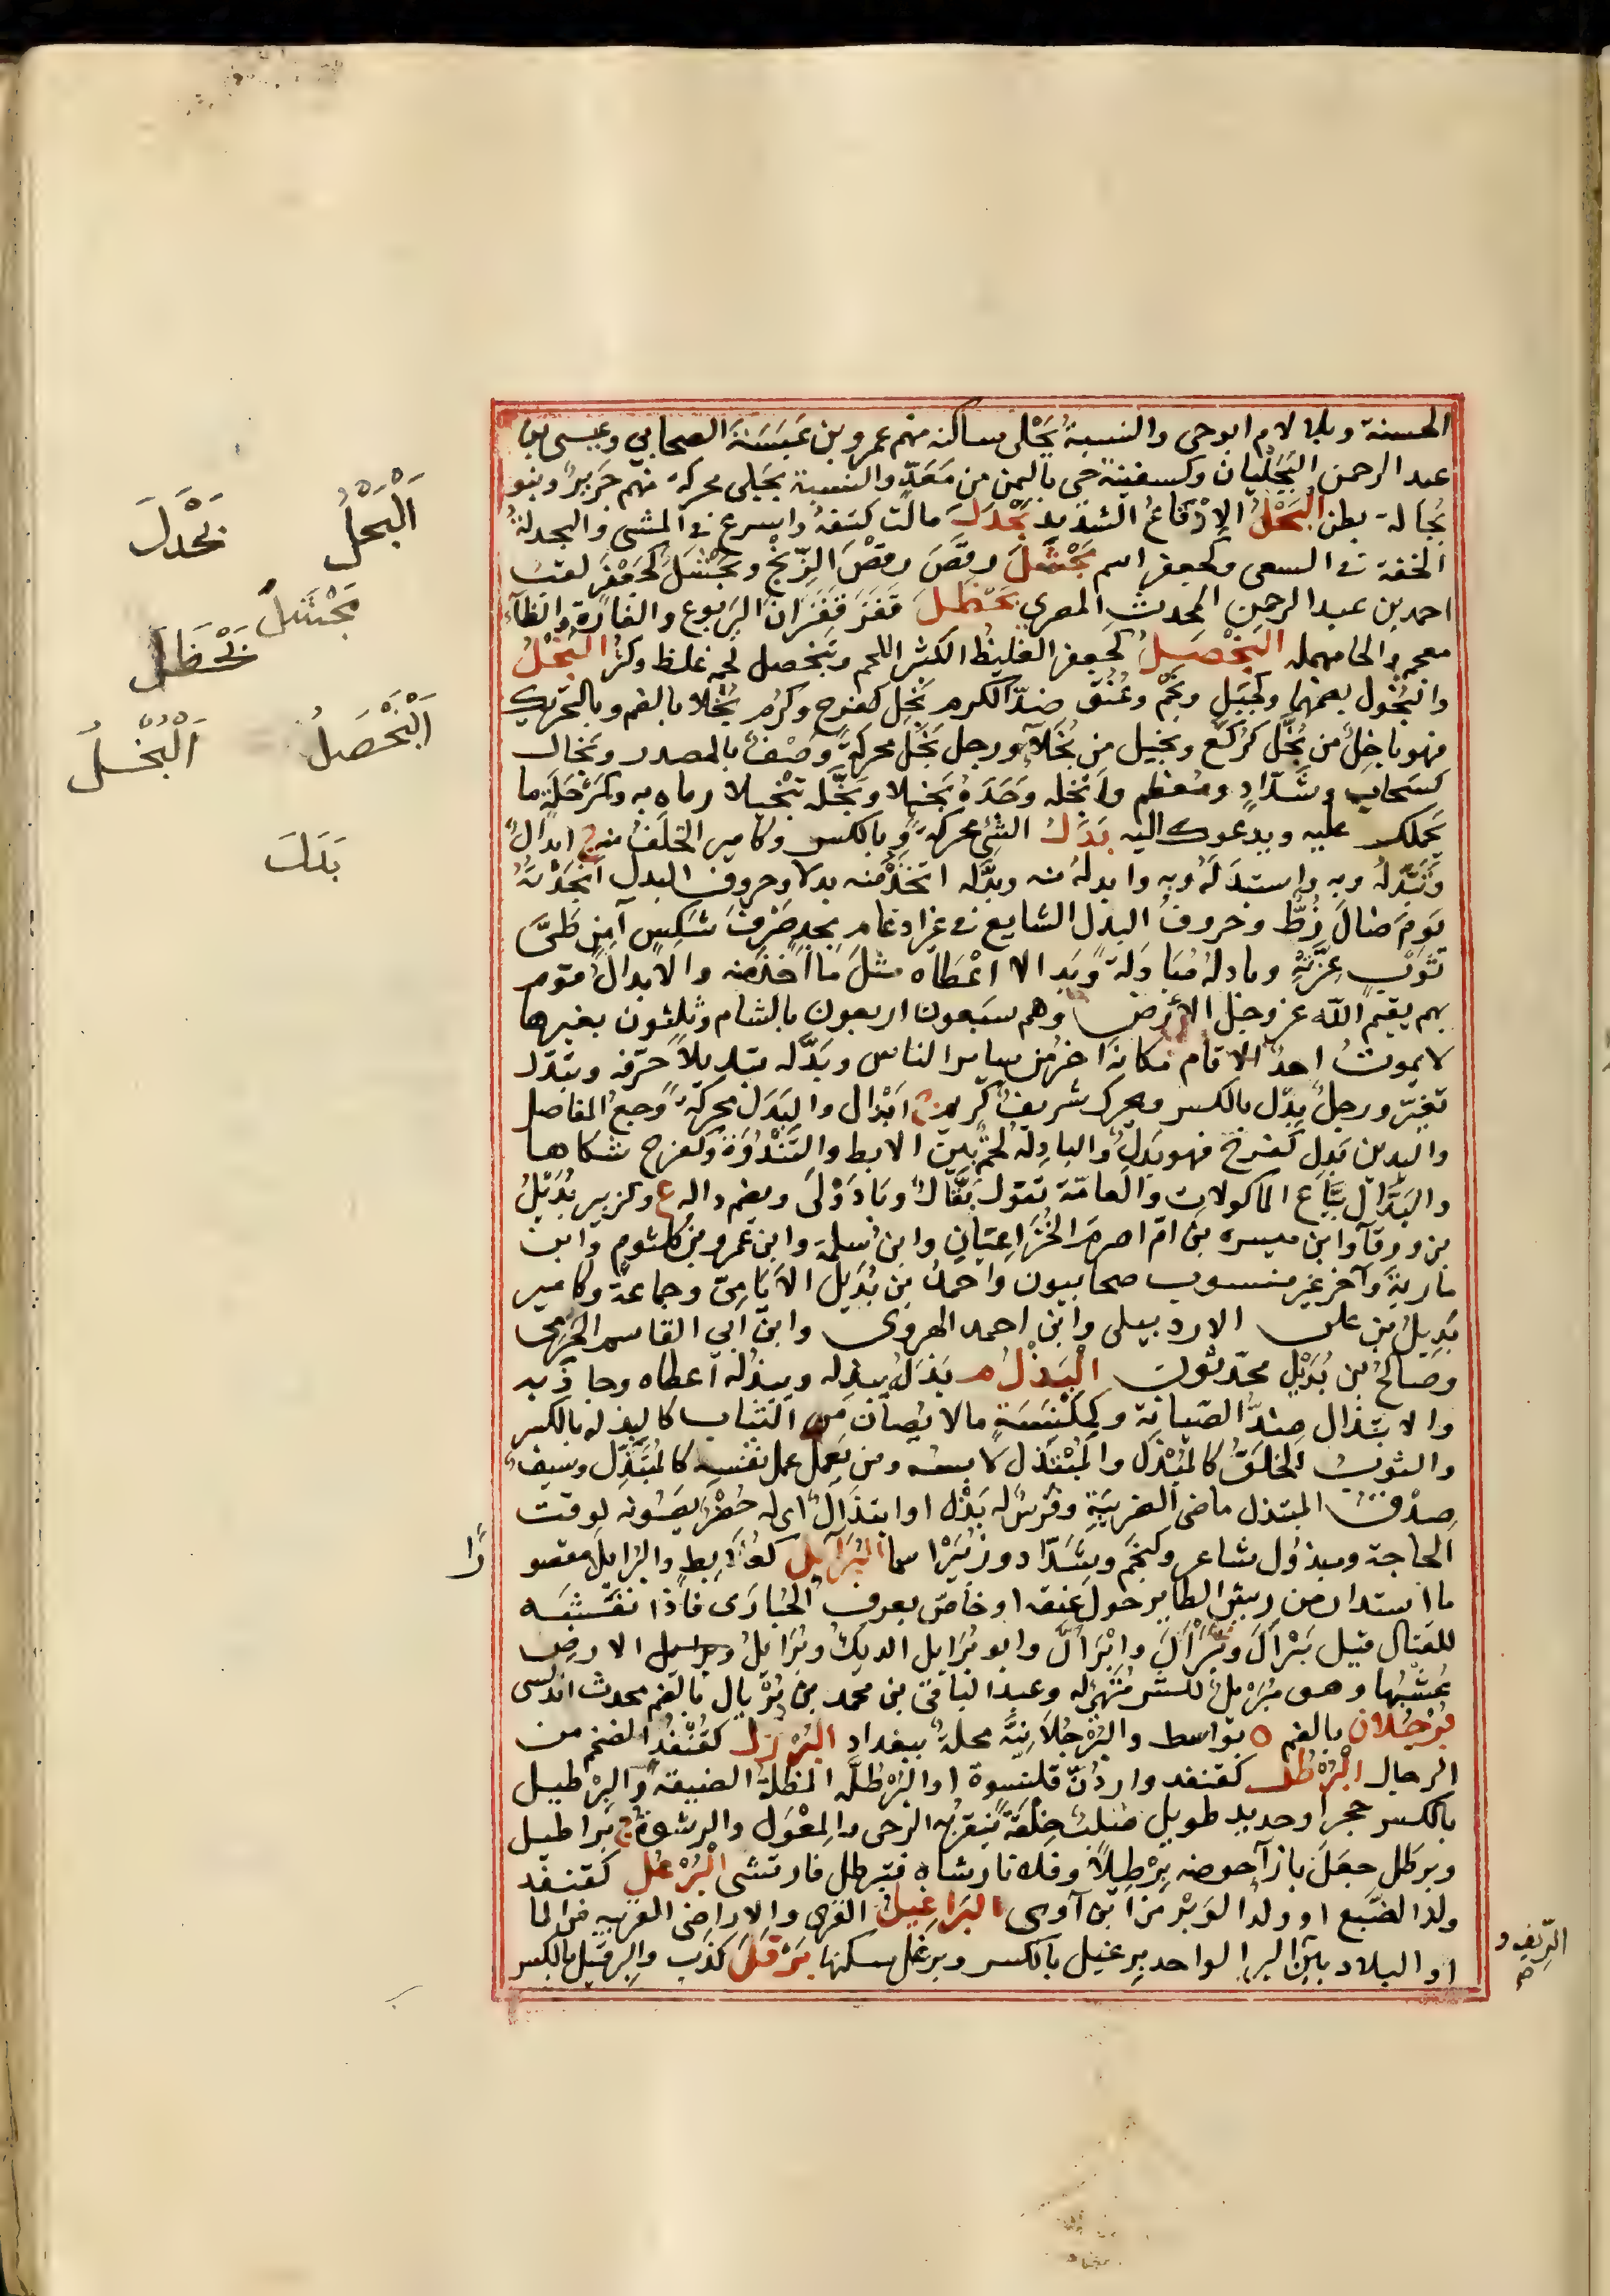 الحسنة وبلا لام ابوحى والنسبة بَجْلى ساكنه منهم عمرو بن عَبَسَةَ الصحابي وعيسى بن
عبد الرحمن البَجْليان وكسفينة حى باليمن من مَعَدّ والنسبة بجَلى محركة منهم جَرِيرٌ وبنو
بَجالة بطن البَحْلُ الإِدْقاعُ الشديد بَحْدَلَ مالت كتفهُ واسرع فى المشى والبحدلةُ
الخفة فى السعى وكجعفر اسم بَحْشَلَ رقَصَ رقصَ الزِّنْجِ وبَحْشَلٌ كجَعْفَر لقبُ
احمد بن عبد الرحمن المحدث المصري بَحْظَلَ قفَزَ قفَزَانَ اليَربوع والفارة والظآء
معجم والحا مهمله البَخْصَلُ كجعفر الغليظُ الكثير اللحم وتَبَخْصل لحمه غلظ وكثر البُخْلُ
والبُخُول بضمهما وكجَبَل ونَجْم وعُنُق ضدّ الكرم بَخِل كفرح وكرُم بُخْلا بالضم وبالتحريك
فهو باخِلٌ من بُخَّل كرُكَّع وبخيل من بُخَلآء ورجل بَخَل محركةً وَصْفٌ بالمصدر وبَخال
كسَحاب وشَدّادٍ ومُعَظم وأبخله وَجَدَهُ بَخيلا وبَخَّله تَبْخيلا رماه به وكمَرْحَلةٍ ما
يَحملك عليه ويدعوك اليه بَدَلُ الشئ محركةً وبالكسر وكامير الخَلَفُ منه ج ابدالٌ
وتَبَدَّلهُ وبه واستبدَلَهُ وبه وابدلهُ منه وبدَّله اتخَذَ منه بدلا وحروف البدل انجَدْتهُ
يومَ صالَ زُطّ وحروفُ البدل الشايع فى غير ادغام بجِدٍ صَرْفُ شكِسٍ آمِن طَىَّ
ثَوْبِ عِزَّتِهِ وبادلهُ مُبادَلةً وبدالا اعْطَاه مثلَ ما اخذ منه والابدال قوم
بهم يقيم الله عز وجل الارض وهم سبعون اربعون بالشام وثلثون بغيرها
لا يموتُ احدُ الا قام مكانهُ اخرُ من ساير الناس وبَدَّله تبديلاً حرّفه وتبدّل
تغيّر ورجلٌ بِدْل بالكسر ومحرك شريفٌ كريم ج ابْدال والبَدَل محركةً وَجع المفاصل
واليدين بَدِل كفرح فهو بَدِلٌ والبادِلة لحمٌ بين الابط والثَّنْدُوَة وكفرح شكاها
والبَدَّال بَيّاع الماكولات والعامّة تقول بَقَّال وبَادَوْلَى وبضم داله ع وكزبير بُدَيْلُ
بن ورقآ وابن ميسره بن امّ اصرمَ الخُزَاعِيّان وابن سلمة وابن عَمرو بن كلثوم وابن
ماريةَ وآخر غير منسوب صحابيون واحمدُ بن بُدَيل الايامِىّ وجماعةٌ وكامير
بَدِيلُ بن على الاردبيلى وابن احمد الهروى وابن ابي القاسم الخُوَيّ
وصالحُ بن بُدَيْلٍ محدّثون البَذْلُ م بَذَلَهُ يبذِله ويبذُله اعطاه وجادَ به
والابتذال ضدُّ الصّيانة وكمِكْنَسَةٍ مالا يُصانُ من الثياب كالبِذلة بالكسر
والثوبُ الخَلَقُ كالمِبْذَل والمُبْتَذِل لابسه ومن يَعمل عمل نفسه كالمُتَبَذِّل وسيفٌ
صِدْقُ المبتذل ماضى الضريبَةِ وفَرسٌ له بَذْل او ابتذالٌ اى له حُضْر يَصُونه لوقت
الحاجة ومبذُول شاعر وكنَجْم وشَدّاد وزُبَيْر اسما البُرَايِلُ كعُلابِطٍ والبُرَايِلى مقصو
رًا
ما استدار من ريش الطاير حول عنقه او خاصّ بعرف الحُبارَى فاذا نفشَه
للقتال قيل بَرْألَ وتَبَرْأَلَ وابْرَأَلَّ وابو بُرَايِل الديك وبُرَايِلُ الارض
عُشْبُها وهو مُبَرْئِلٌ للشر مُتَهَيٌّ له وعبد الباقى بن محمد بن بُرْيال بالضم محدث اندلسى
بُرْجُلان بالضم ة بواسط والبُرْجُلانِيَّة محلةٌ ببغداد البُرْزُلُ كقُنْفُذ الضخم من
الرجال البُرْطُلُ كقنفذ واردُنّ قلنسوة او البُرْطُلَّة المظلة الضيقة والبِرْطيل
بالكسر حجر او حديد طويل صُلب خِلْقةً يُنقر به الرحى والمِعْوَل والرشوة ج بَراطيل
وبرطَل جعَلَ بازآ حوضه بِرْطِيلاً وفلانا رشاه فتبرطل فارتشى البُرْعُلُ كقنفذ
ولدُ الضَبُع او ولدُ الوَبْر من ابن آوى البَرَاغِيلُ القرى والاراضى القريبه من الما
الرِّيفِ و صح
او البلاد بَيْن البر الواحد بِرغيل بالكسر وبرغل سكنها بَرْقَلَ كذب والبِرقيل بالكسر
البَحْلُ
بَحْدَلَ
بَحْشَلَ
بَحْظَلَ
البَخْصَلُ
البُخْلُ
بَدَلَ